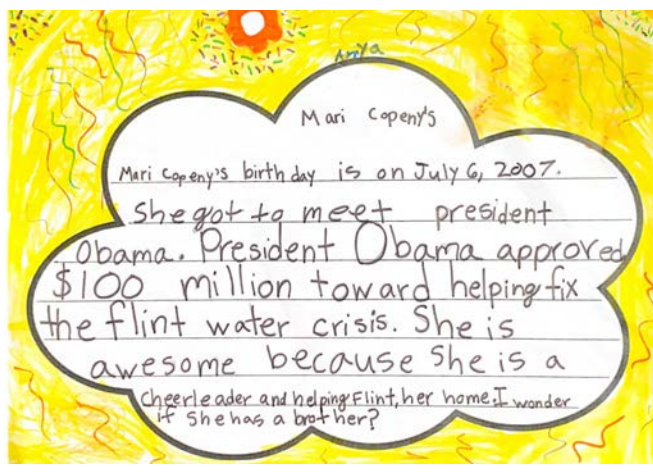 Amya
Mari Copeny's
Mari Copeny's birthday is on July 6, 2007.
She got to meet president
Obama. President Obama approved
$100 million toward helping fix
the flint water crisis. She is
awesome because she is a
cheerleader and helping Flint, her home. I wonder
if she has a brother?